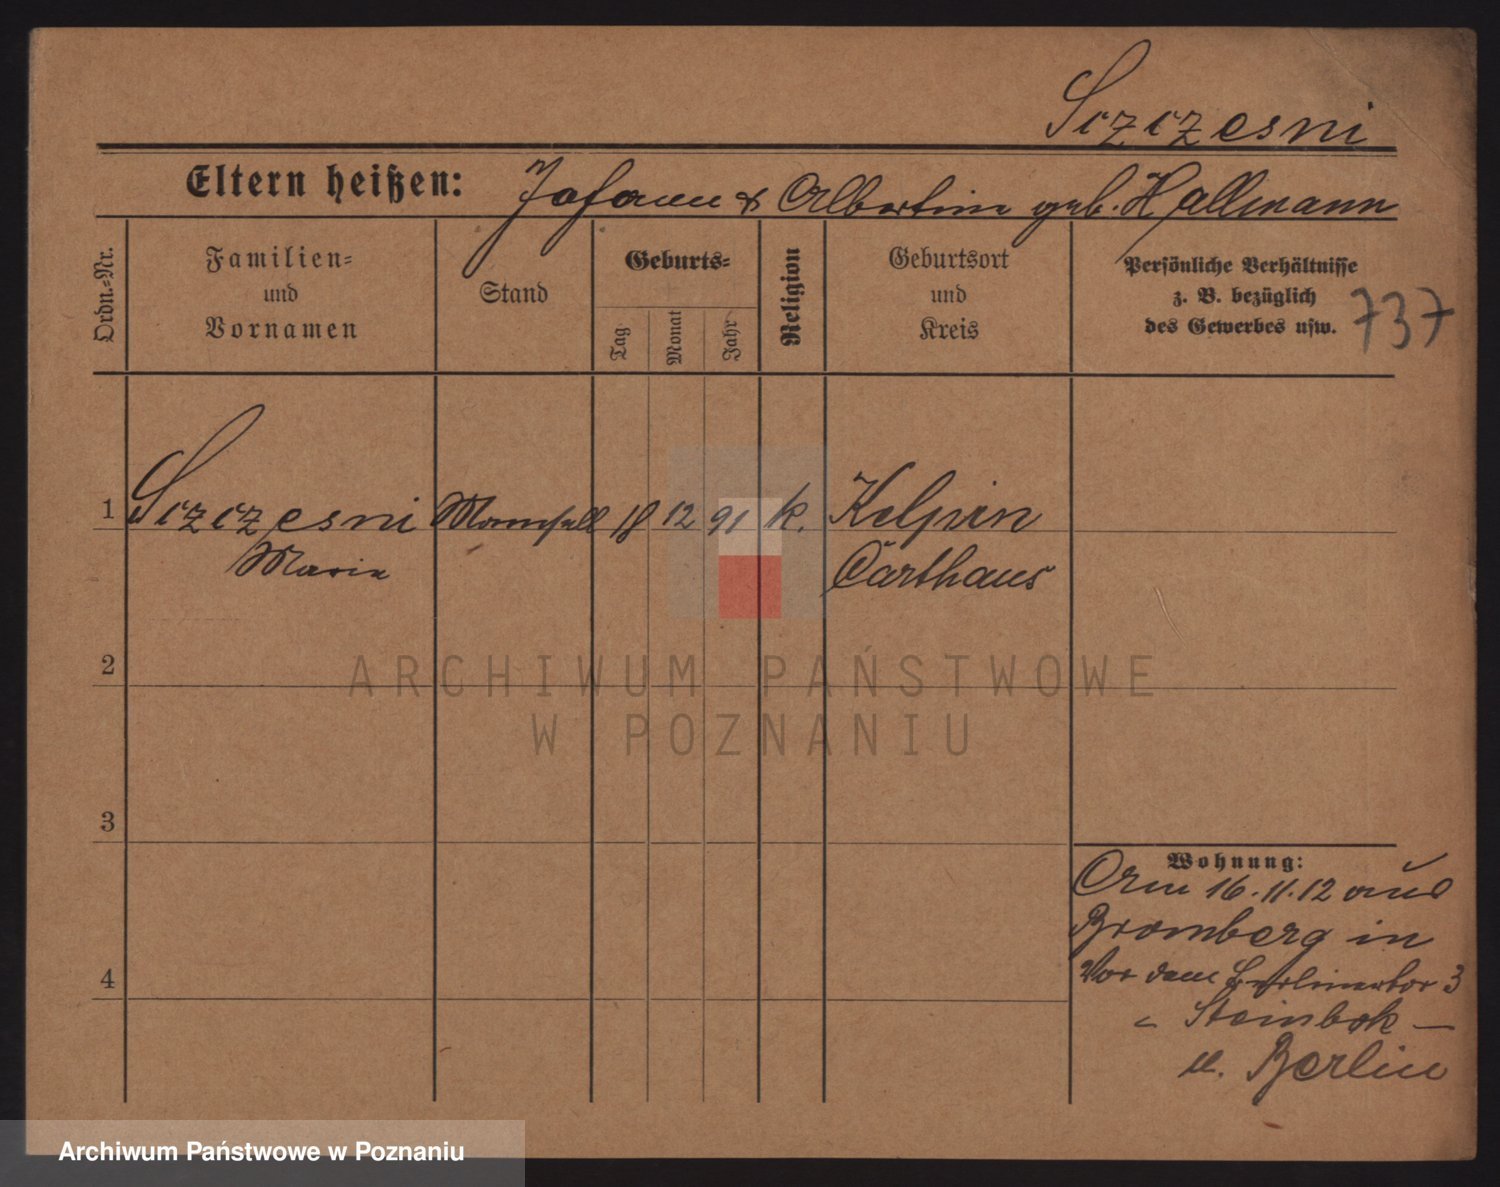 Szczesni
Eltern heißen: Johann & Albertine geb. Hallmann
Ordn.-Nr.
Familien-
und
Vornamen
Stand
Geburts-
Tag
Monat
Jahr
Religion
Geburtsort
und
Kreis
Persönliche Verhältnisse
z. B. bezüglich
des Gewerbes usw.
737
1 Szczesni Mamsell 18 12 91 k. Kelpin
Marie Carthaus
2
3
4
Wohnung:
Am 16.11.12 aus
Bromberg in
Vor dem Berlinertor 3
Steinbok —
n. Berlin
ARCHIWUM PAŃSTWOWE
W POZNANIU
Archiwum Państwowe w Poznaniu